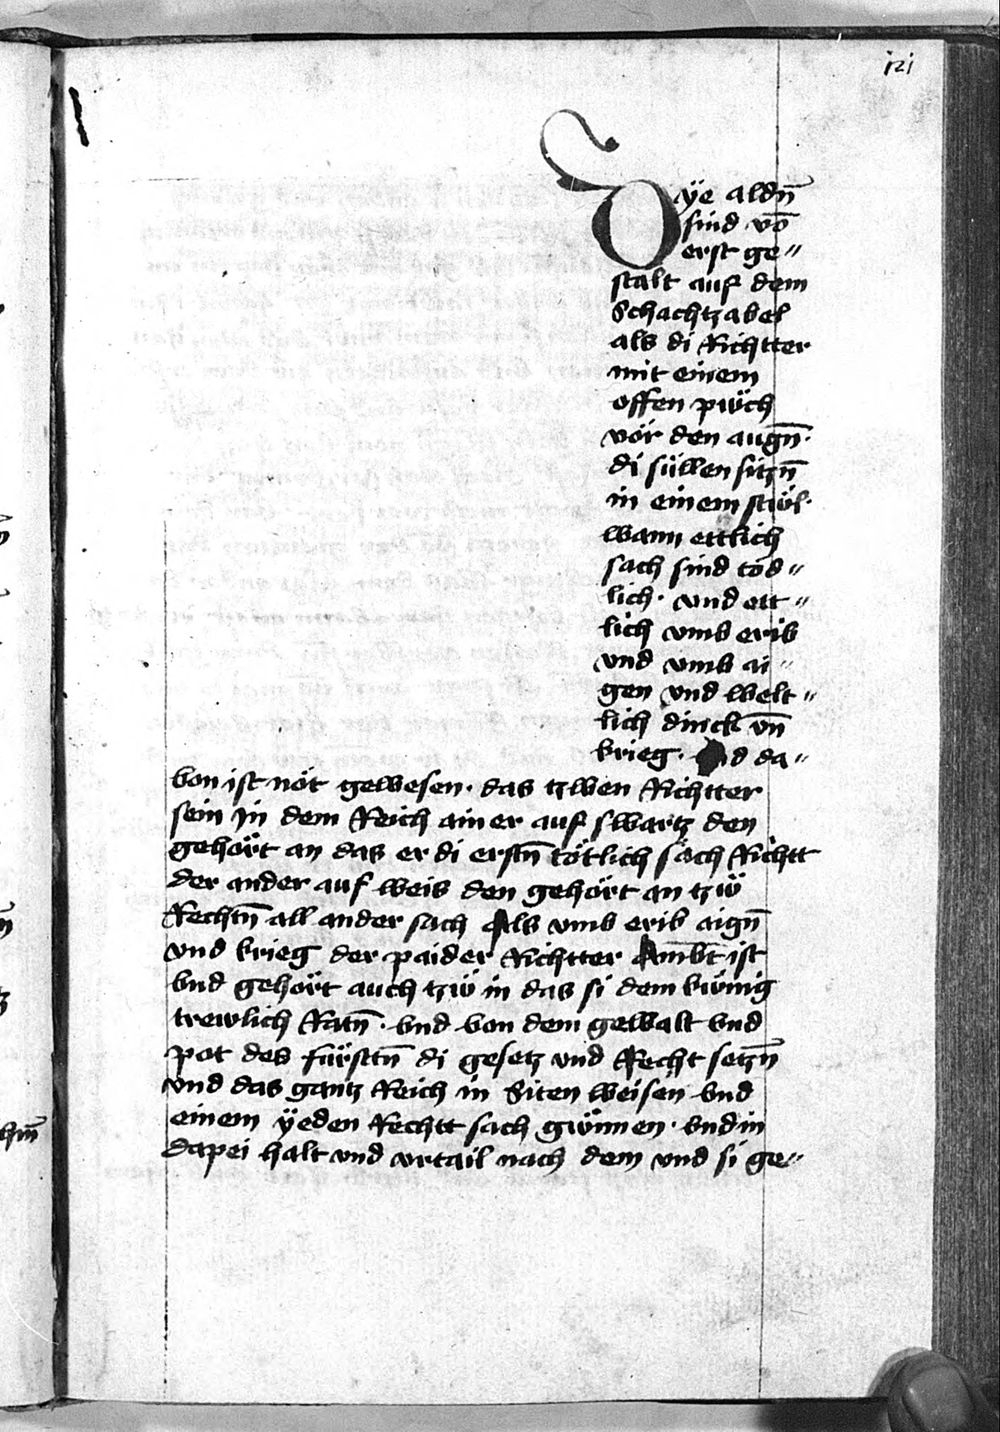 121
Dÿe aldn̄
sind vō
erst ge„
stalt auf dem
Schachtzabel
als di Richtter
mit einem
offen pu̎ch
vor den augn̄·
di süllen sitzn̄
in einem stu̎l·
wann ettlich
sach sind töd„
lich· vnd ett„
lich vmb erib
vnd vmb ai„
gen vnd welt„
lich dinck vn̄
krieg· vnd da„
von ist nöt gewesen· das tzwen Richtter
sein in dem Reich ainer auf swartz den
gehört an das er di erstn̄ tötlich sach Richtt
der ander auf weis den gehört an tzw̎
Rechtn̄ all ander sach Als vmb erib aign̄
vnd krieg der paider Richtter Ambt ist
vnd gehört auch tzw̎ in das si dem kw̎nig
trewlich Ratn̄· vnd von dem gewalt vnd
pot des fürsttn̄ di gesetz vnd Recht setzn̄
vnd das gantz Reich in Siten weisen vnd
einem ÿeden Rechtt sach gw̎nnen· vnd in
dapei halt vnd vrtail nach dem vnd si ge„